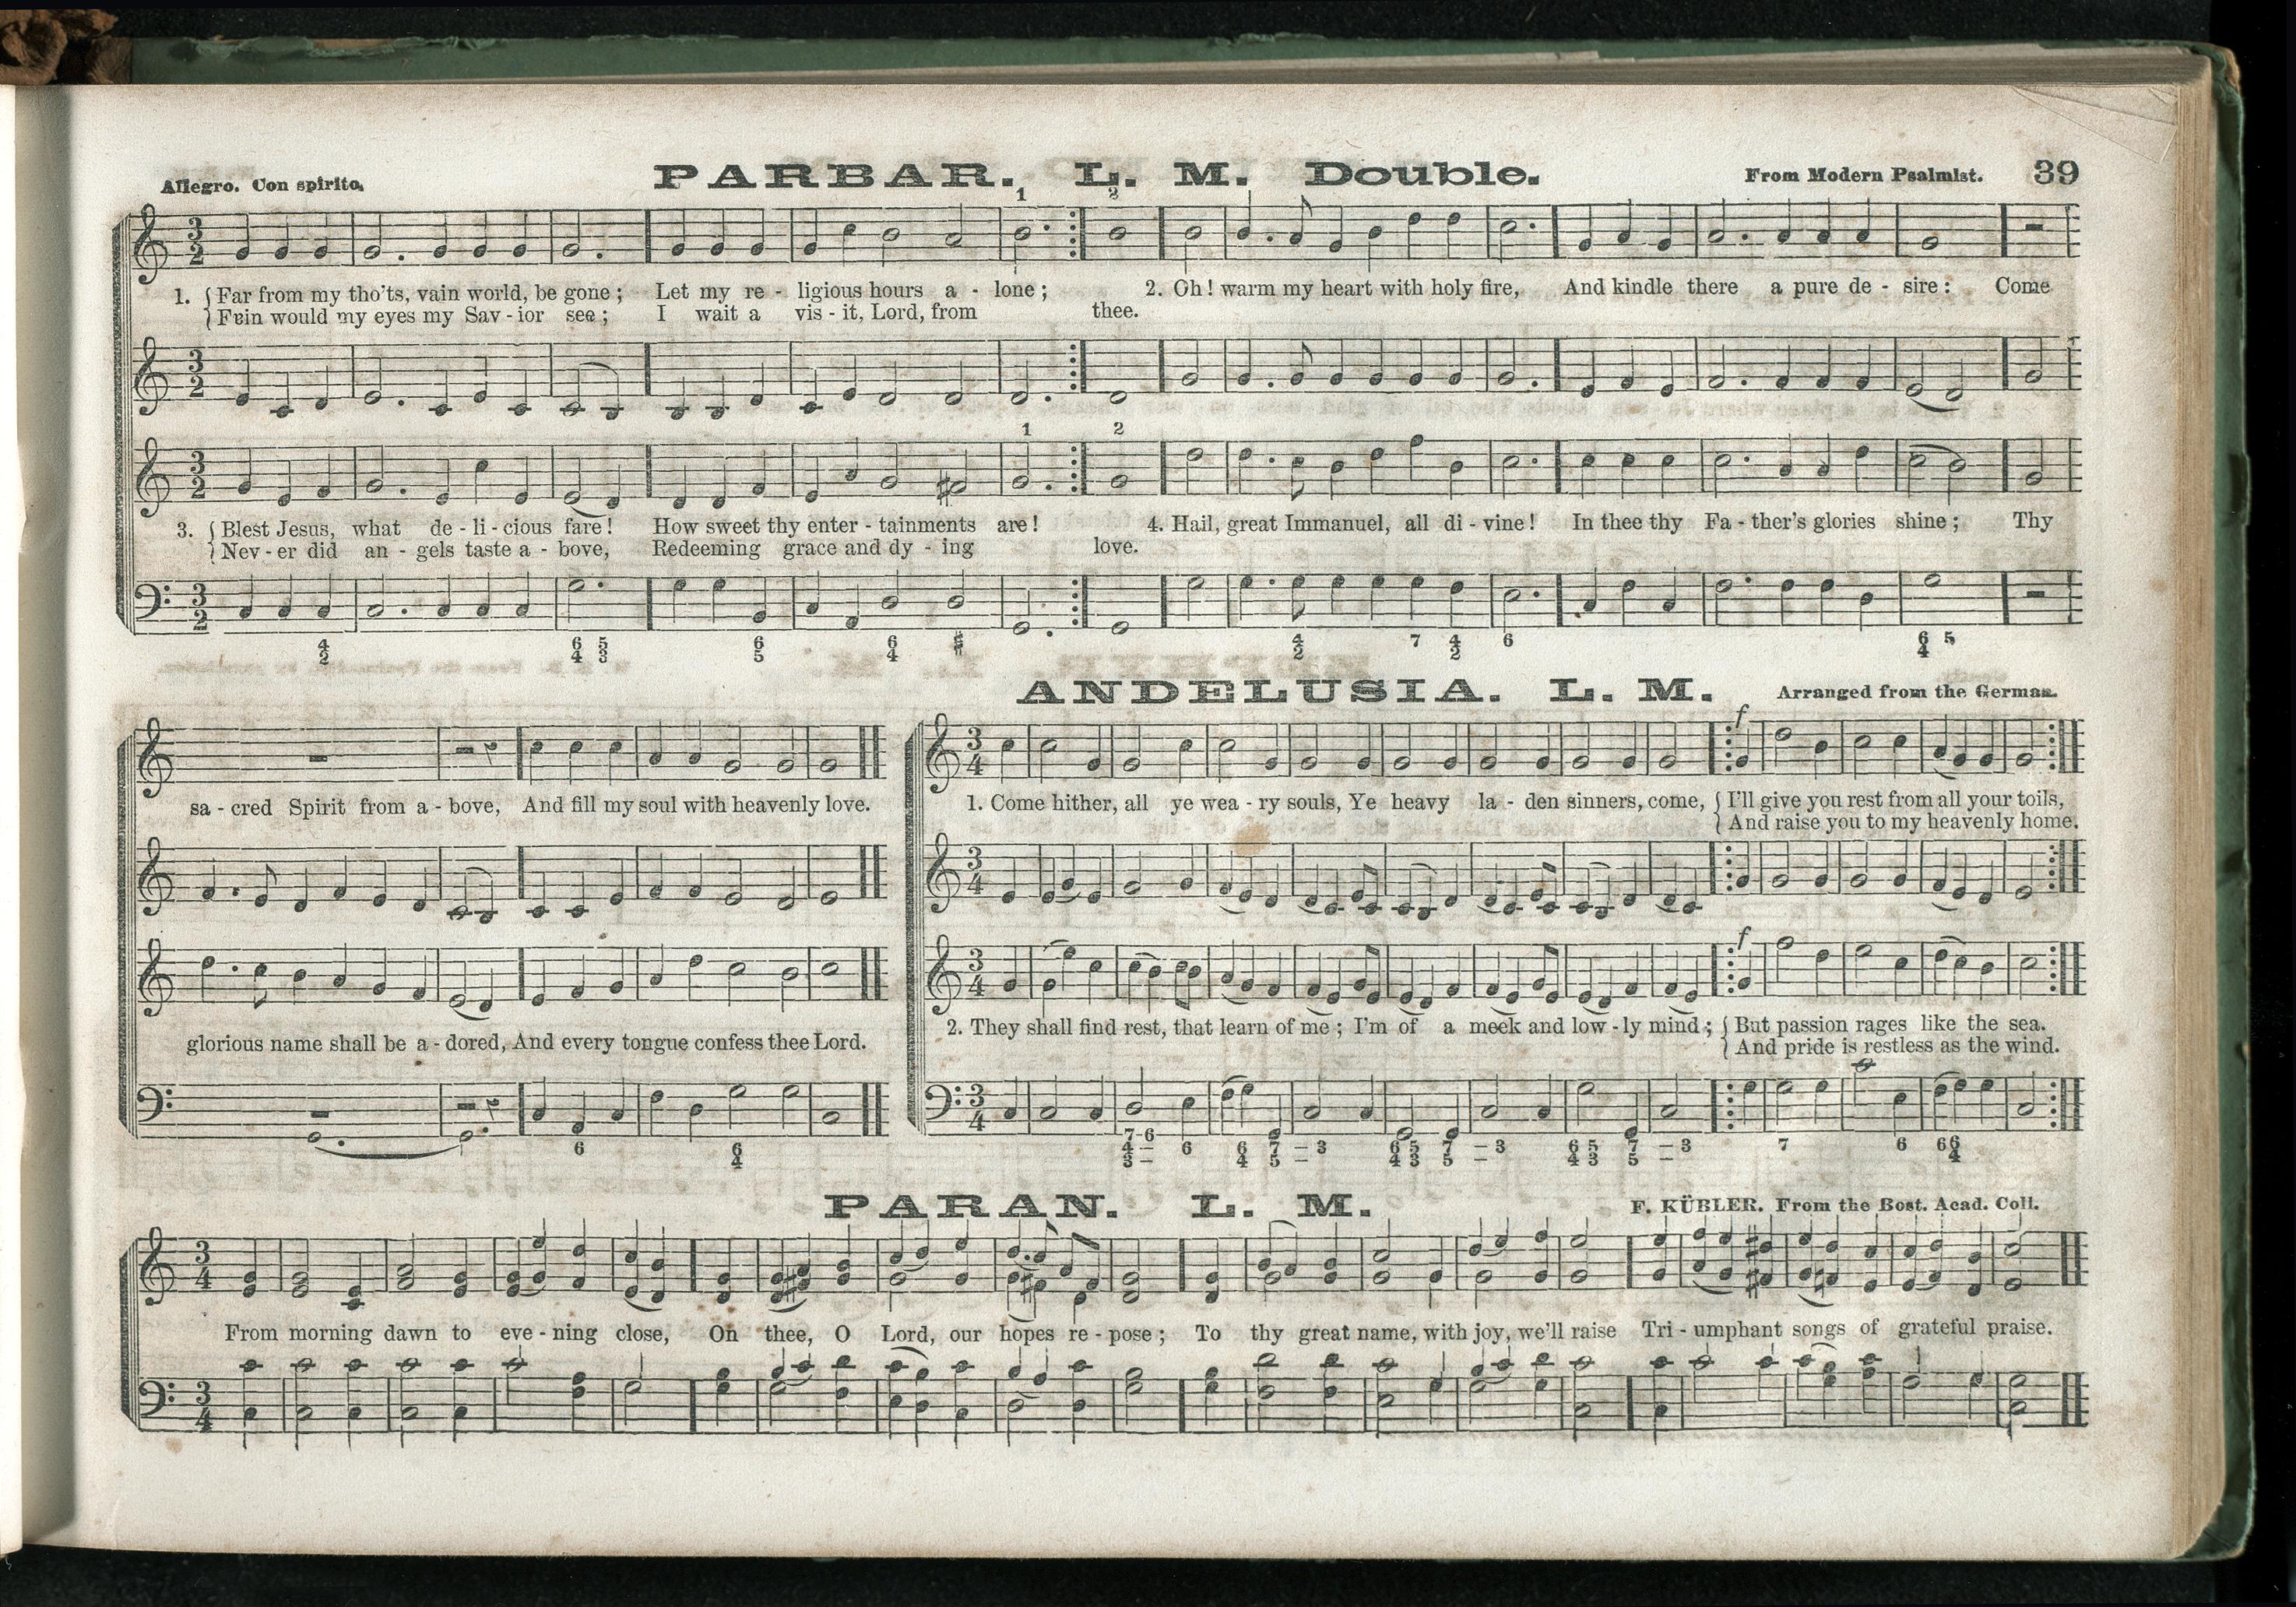 Allegro. Con spirito.
PARBAR. L. M. Double.
From Modern Psalmist.
39
1 2
3
2
1. { Far from my tho'ts, vain world, be gone ; Let my re - ligious hours a - lone ; 2. Oh ! warm my heart with holy fire, And kindle there a pure de - sire : Come
{ Fain would my eyes my Sav - ior see ; I wait a vis - it, Lord, from thee.
3
2
1 2
3
2
3. { Blest Jesus, what de - li - cious fare ! How sweet thy enter - tainments are ! 4. Hail, great Immanuel, all di - vine ! In thee thy Fa - ther's glories shine ; Thy
{ Nev - er did an - gels taste a - bove, Redeeming grace and dy - ing love.
3
2
4 6 5 6 6 # 4 7 4 6 6 5
2 4 3 5 4 2 2 4
ANDELUSIA. L. M.
Arranged from the German.
sa - cred Spirit from a - bove, And fill my soul with heavenly love.
glorious name shall be a - dored, And every tongue confess thee Lord.
6 6
4
f
3
4
1. Come hither, all ye wea - ry souls, Ye heavy la - den sinners, come, { I'll give you rest from all your toils,
{ And raise you to my heavenly home.
3
4
f
3
4
2. They shall find rest, that learn of me ; I'm of a meek and low - ly mind ; { But passion rages like the sea.
{ And pride is restless as the wind.
3
4
7 6 6 6 7 – 3 6 5 7 – 3 6 5 7 – 3 7 6 6 6
4 – 4 5 – 4 3 5 – 4 3 5 – 4
3 –
PARAN. L. M.
F. KÜBLER. From the Bost. Acad. Coll.
3
4
From morning dawn to eve - ning close, On thee, O Lord, our hopes re - pose ; To thy great name, with joy, we'll raise Tri - umphant songs of grateful praise.
3
4